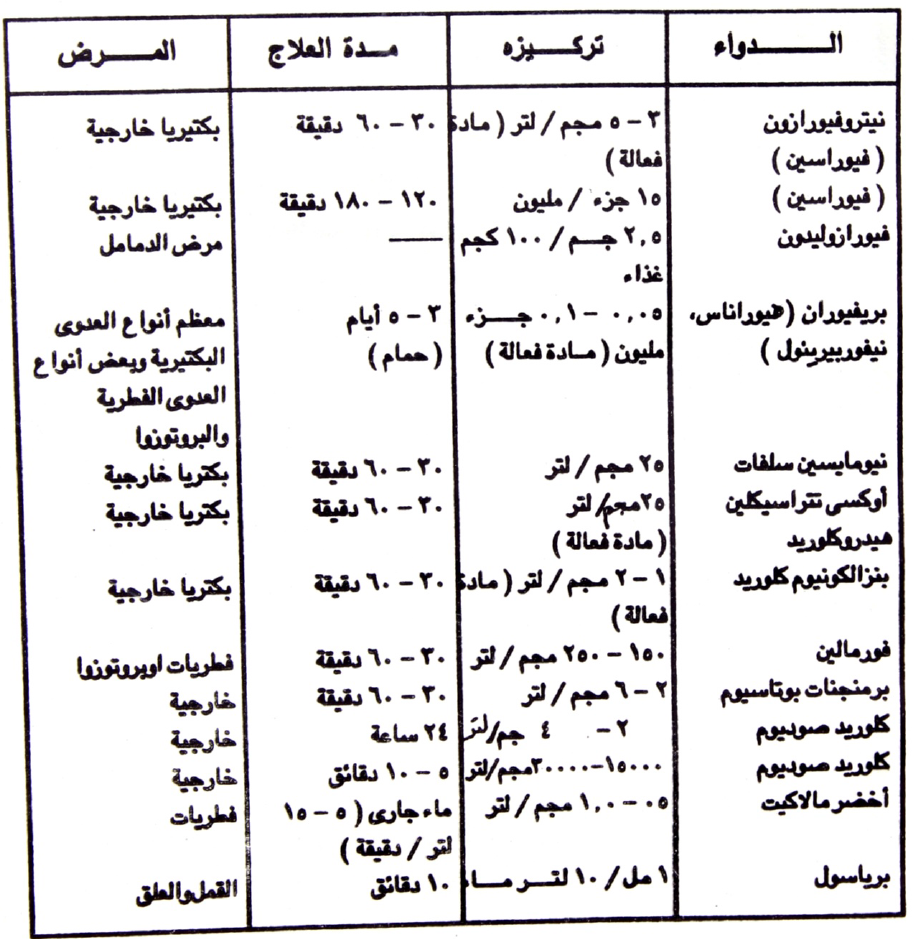 الـــــدواء تركـــيزه مـــدة العلاج المـــرض
نيتروفيورازون ٣ – ٥ مجم / لتر ( مادة ٣٠ – ٦٠ دقيقة بكتيريا خارجية
( فيوراسين ) فعالة )
( فيوراسين ) ١٥ جزء / مليون ١٢٠ – ١٨٠ دقيقة بكتيريا خارجية
فيورازوليدون ٢,٥ جـــم / ١٠٠ كجم —— مرض الدمامل
غذاء
بريفيوران ( هيوراناس، ٠,٠٥ – ٠,١ جـــزء ٣ – ٥ أيام معظم أنواع العدوى
نيفوربيرينول ) مليون ( مـادة فعالة ) ( حمام ) البكتيرية وبعض أنواع
العدوى الفطرية
والبروتوزوا
نيومايسين سلفات ٢٥ مجم / لتر ٣٠ – ٦٠ دقيقة بكتريا خارجية
أوكسى تتراسيكلين ٢٥مجم/ لتر ٣٠ – ٦٠ دقيقة بكتريا خارجية
هيدروكلوريد ( مادة فعالة )
بنزالكونيوم كلوريد ١ – ٢ مجم / لتر ( مادة ٣٠ – ٦٠ دقيقة بكتريا خارجية
فعالة )
فورمالين ١٥٠ – ٢٥٠ مجم / لتر ٣٠ – ٦٠ دقيقة فطريات اوبروتوزوا
برمنجنات بوتاسيوم ٢ – ٦ مجم / لتر ٣٠ – ٦٠ دقيقة خارجية
كلوريد صوديوم ٢ – ٤ جم/لتر ٢٤ ساعة خارجية
كلوريد صوديوم ١٥٠٠٠–٣٠٠٠٠مجم/لتر ٥ – ١٠ دقائق خارجية
أخضر مالاكيت ٠٥ – ١,٠ مجم / لتر ماء جارى ( ٥ – ١٥ فطريات
لتر / دقيقة )
برياسول ١ مل / ١٠ لتـــر مـــاء ١٠ دقائق القمل والعلق